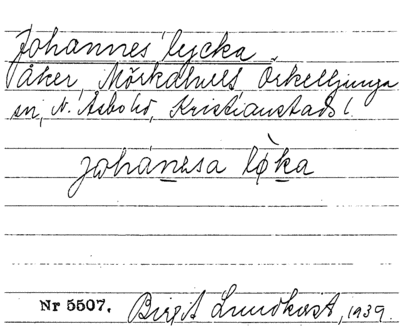 Johannes' lycka
åker, Mörkahuls Örkelljunga
sn, N. Åsbo hd, Kristianstads l.
johánesa lø̀ka
Nr 5507. Birgit Lundkvist, 1939.